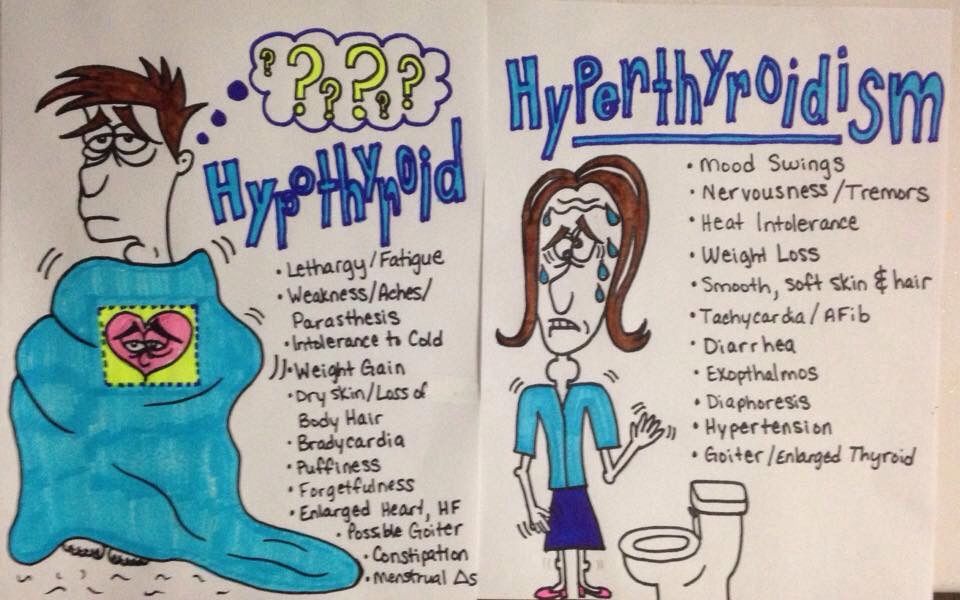 ? ? ? ? ? ?
Hypothyroid
• Lethargy/Fatigue
• Weakness/Aches/
Parasthesis
• Intolerance to Cold
• Weight Gain
• Dry Skin/Loss of
Body Hair
• Bradycardia
• Puffiness
• Forgetfulness
• Enlarged Heart, HF
• Possible Goiter
• Constipation
• Menstrual Δs
Hyperthyroidism
• Mood Swings
• Nervousness/Tremors
• Heat Intolerance
• Weight Loss
• Smooth, soft skin & hair
• Tachycardia/AFib
• Diarrhea
• Exopthalmos
• Diaphoresis
• Hypertension
• Goiter/Enlarged Thyroid